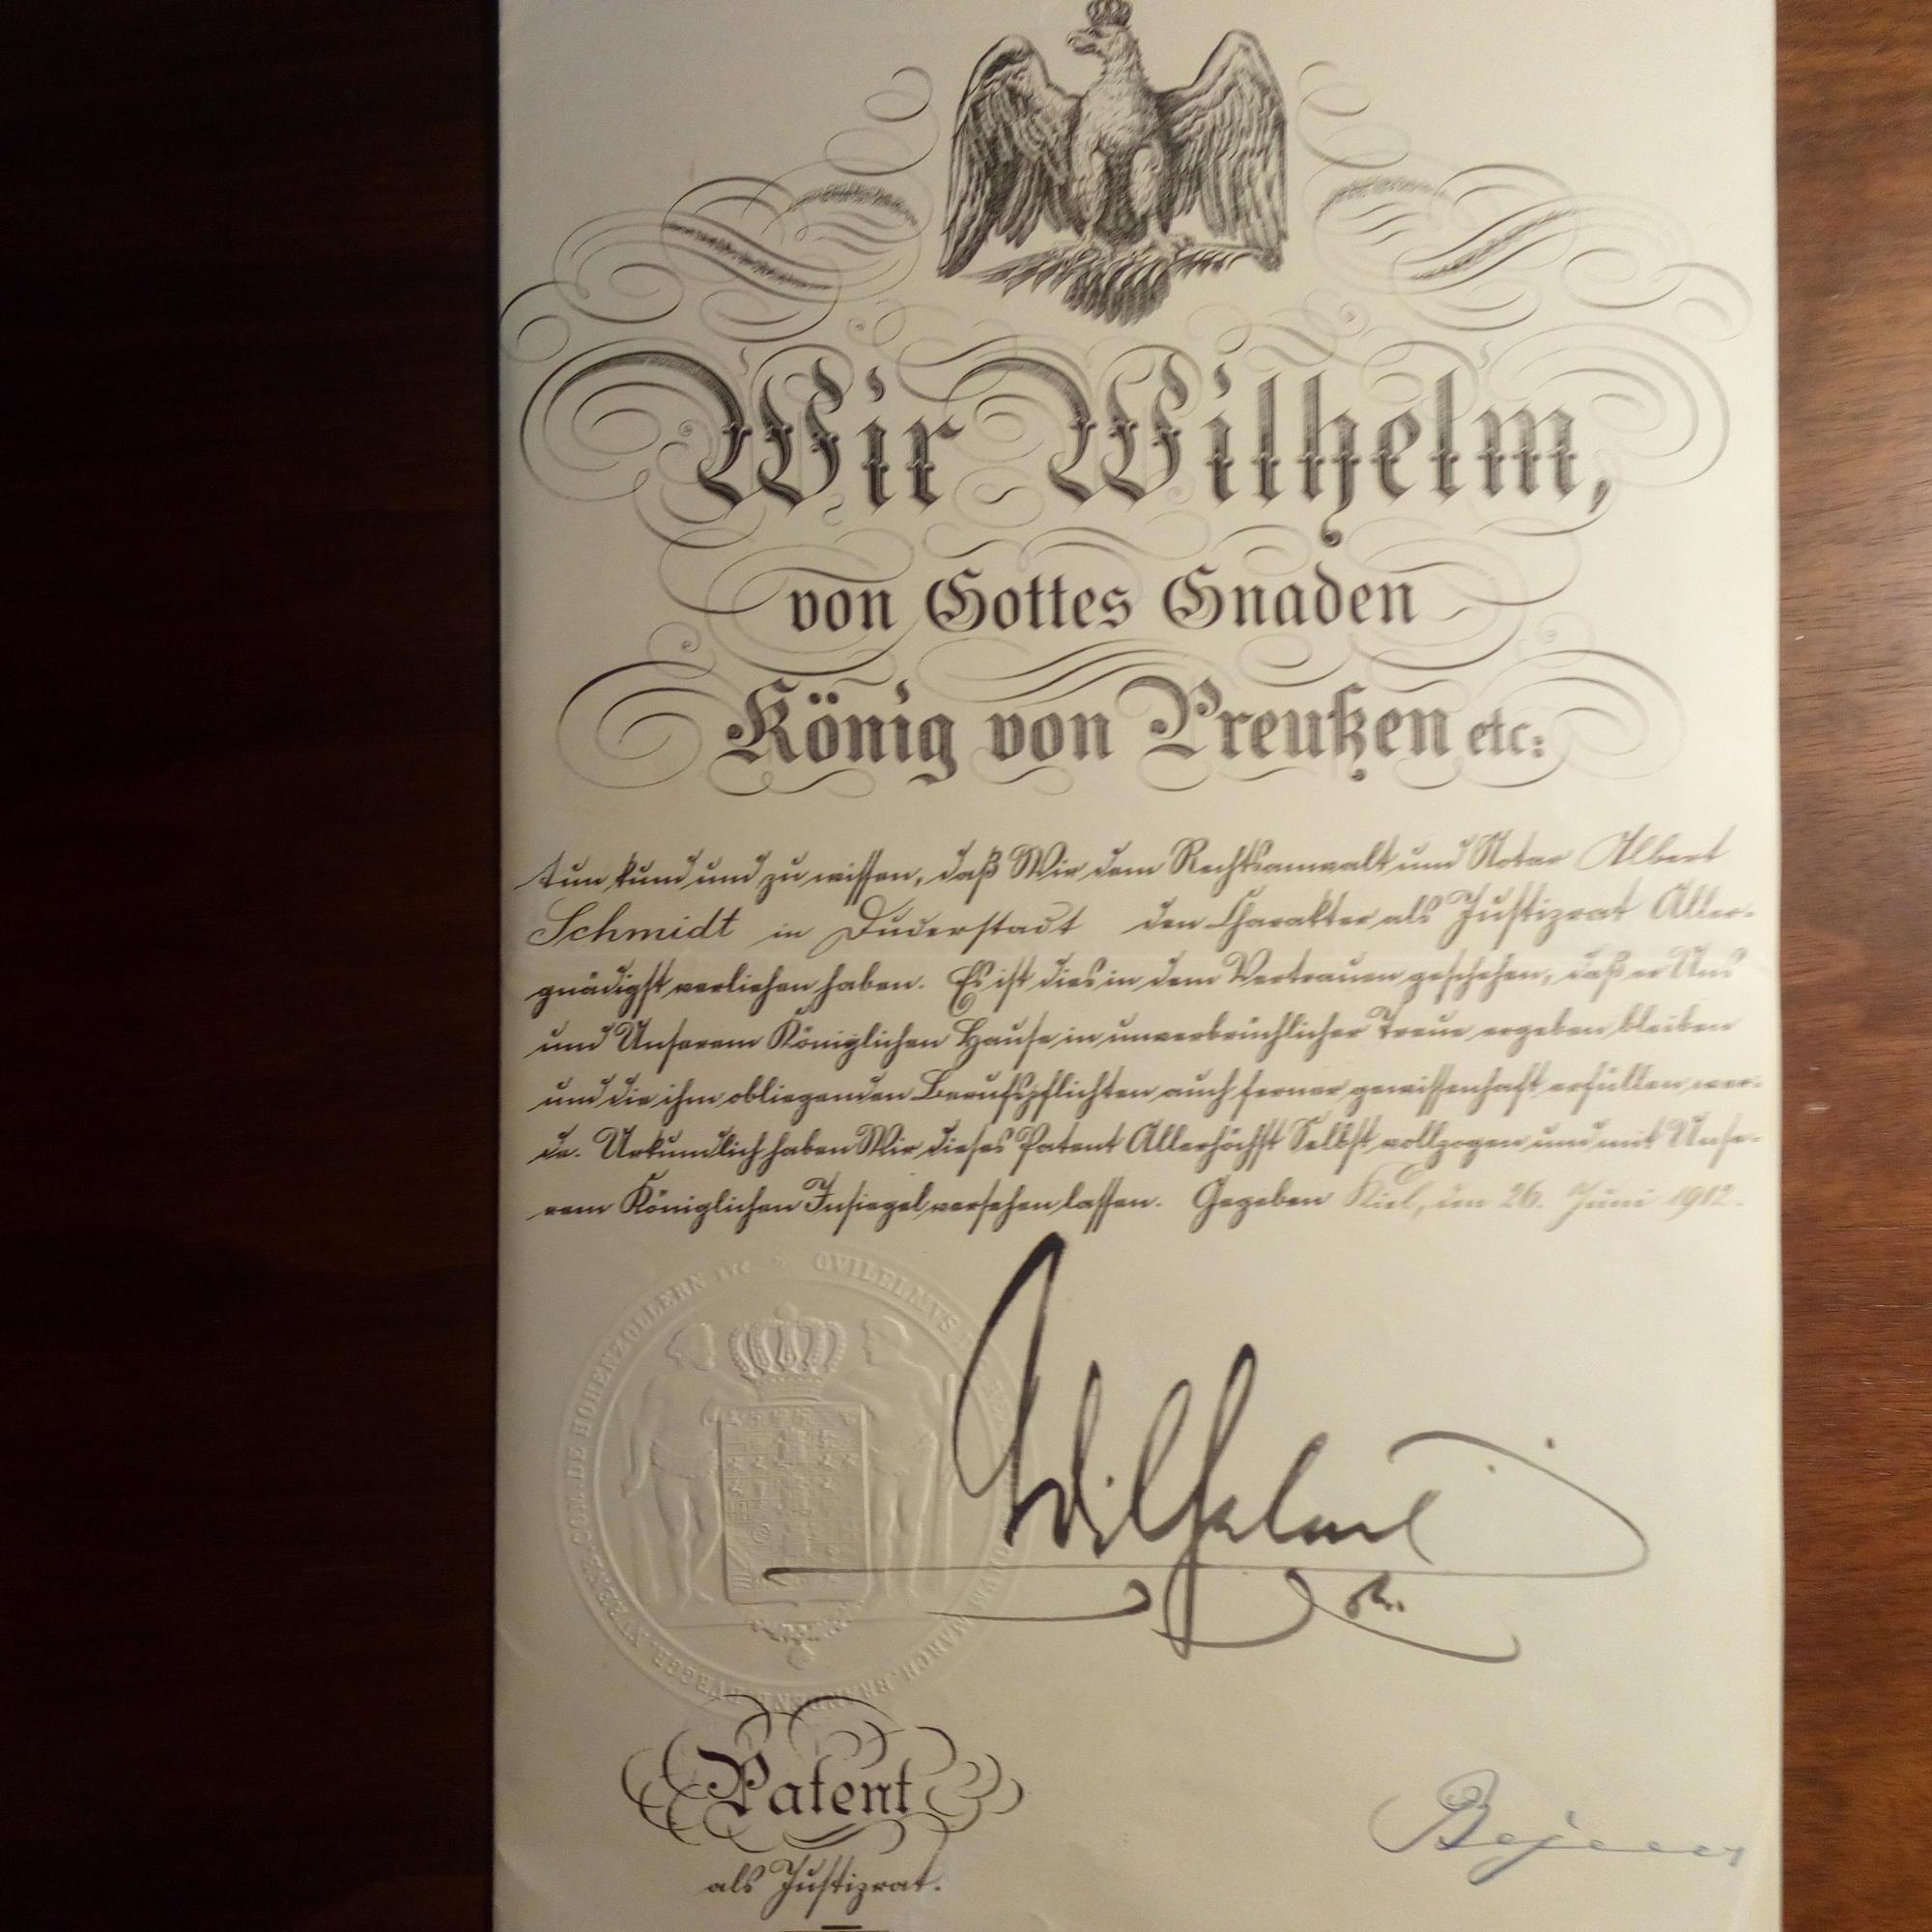 Wir Wilhelm,
von Gottes Gnaden
König von Preußen etc:
tun kund und zu wissen, daß Wir dem Rechtsanwalt und Notar Albert
Schmidt in Duderstadt den Charakter als Justizrat Aller-
gnädigst verliehen haben. Es ist dies in dem Vertrauen geschehen, daß er Uns
und Unserem Königlichen Hause in unverbrüchlicher Treue ergeben bleiben
und die ihm obliegenden Berufspflichten auch ferner gewissenhaft erfüllen wer-
de. Urkundlich haben Wir dieses Patent Allerhöchst Selbst vollzogen und mit Unse-
rem Königlichen Insiegel versehen lassen. Gegeben Kiel, den 26. Juni 1912.
GVILELMVS
MARCH. BRANDENBVRGER. COM. DE HOHENZOLLERN etc
Wilhelm
Patent
als Justizrat.